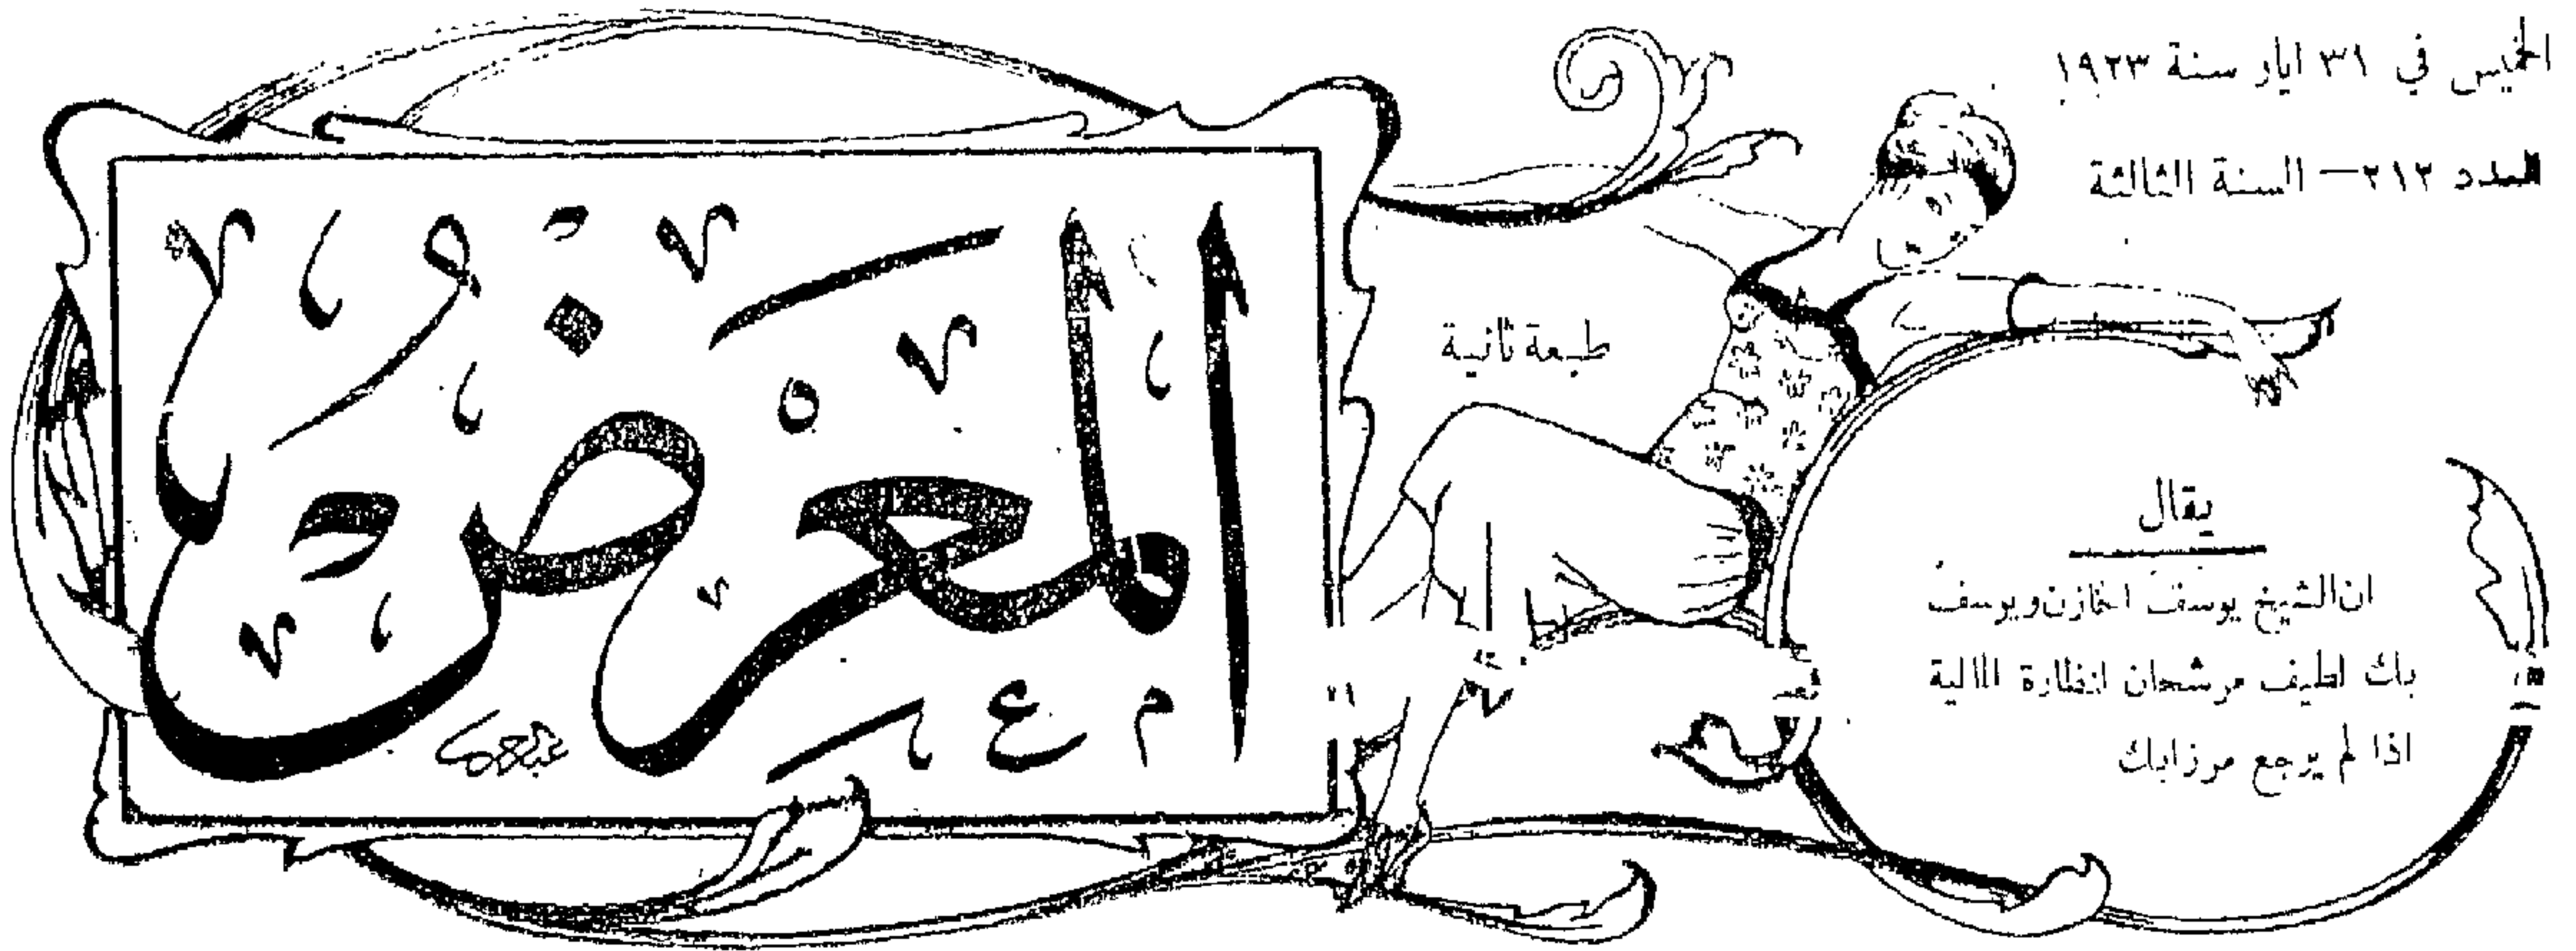 الخميس في ٣١ ايار سنة ١٩٢٣
العدد ٢١٢ — السنة الثالثة
المعرض
طبعة ثانية
يقال
ان الشيخ يوسف الخازن ويوسف
بك لطيف مرشحان لنظارة المالية
اذا لم يرجع مرزا بك